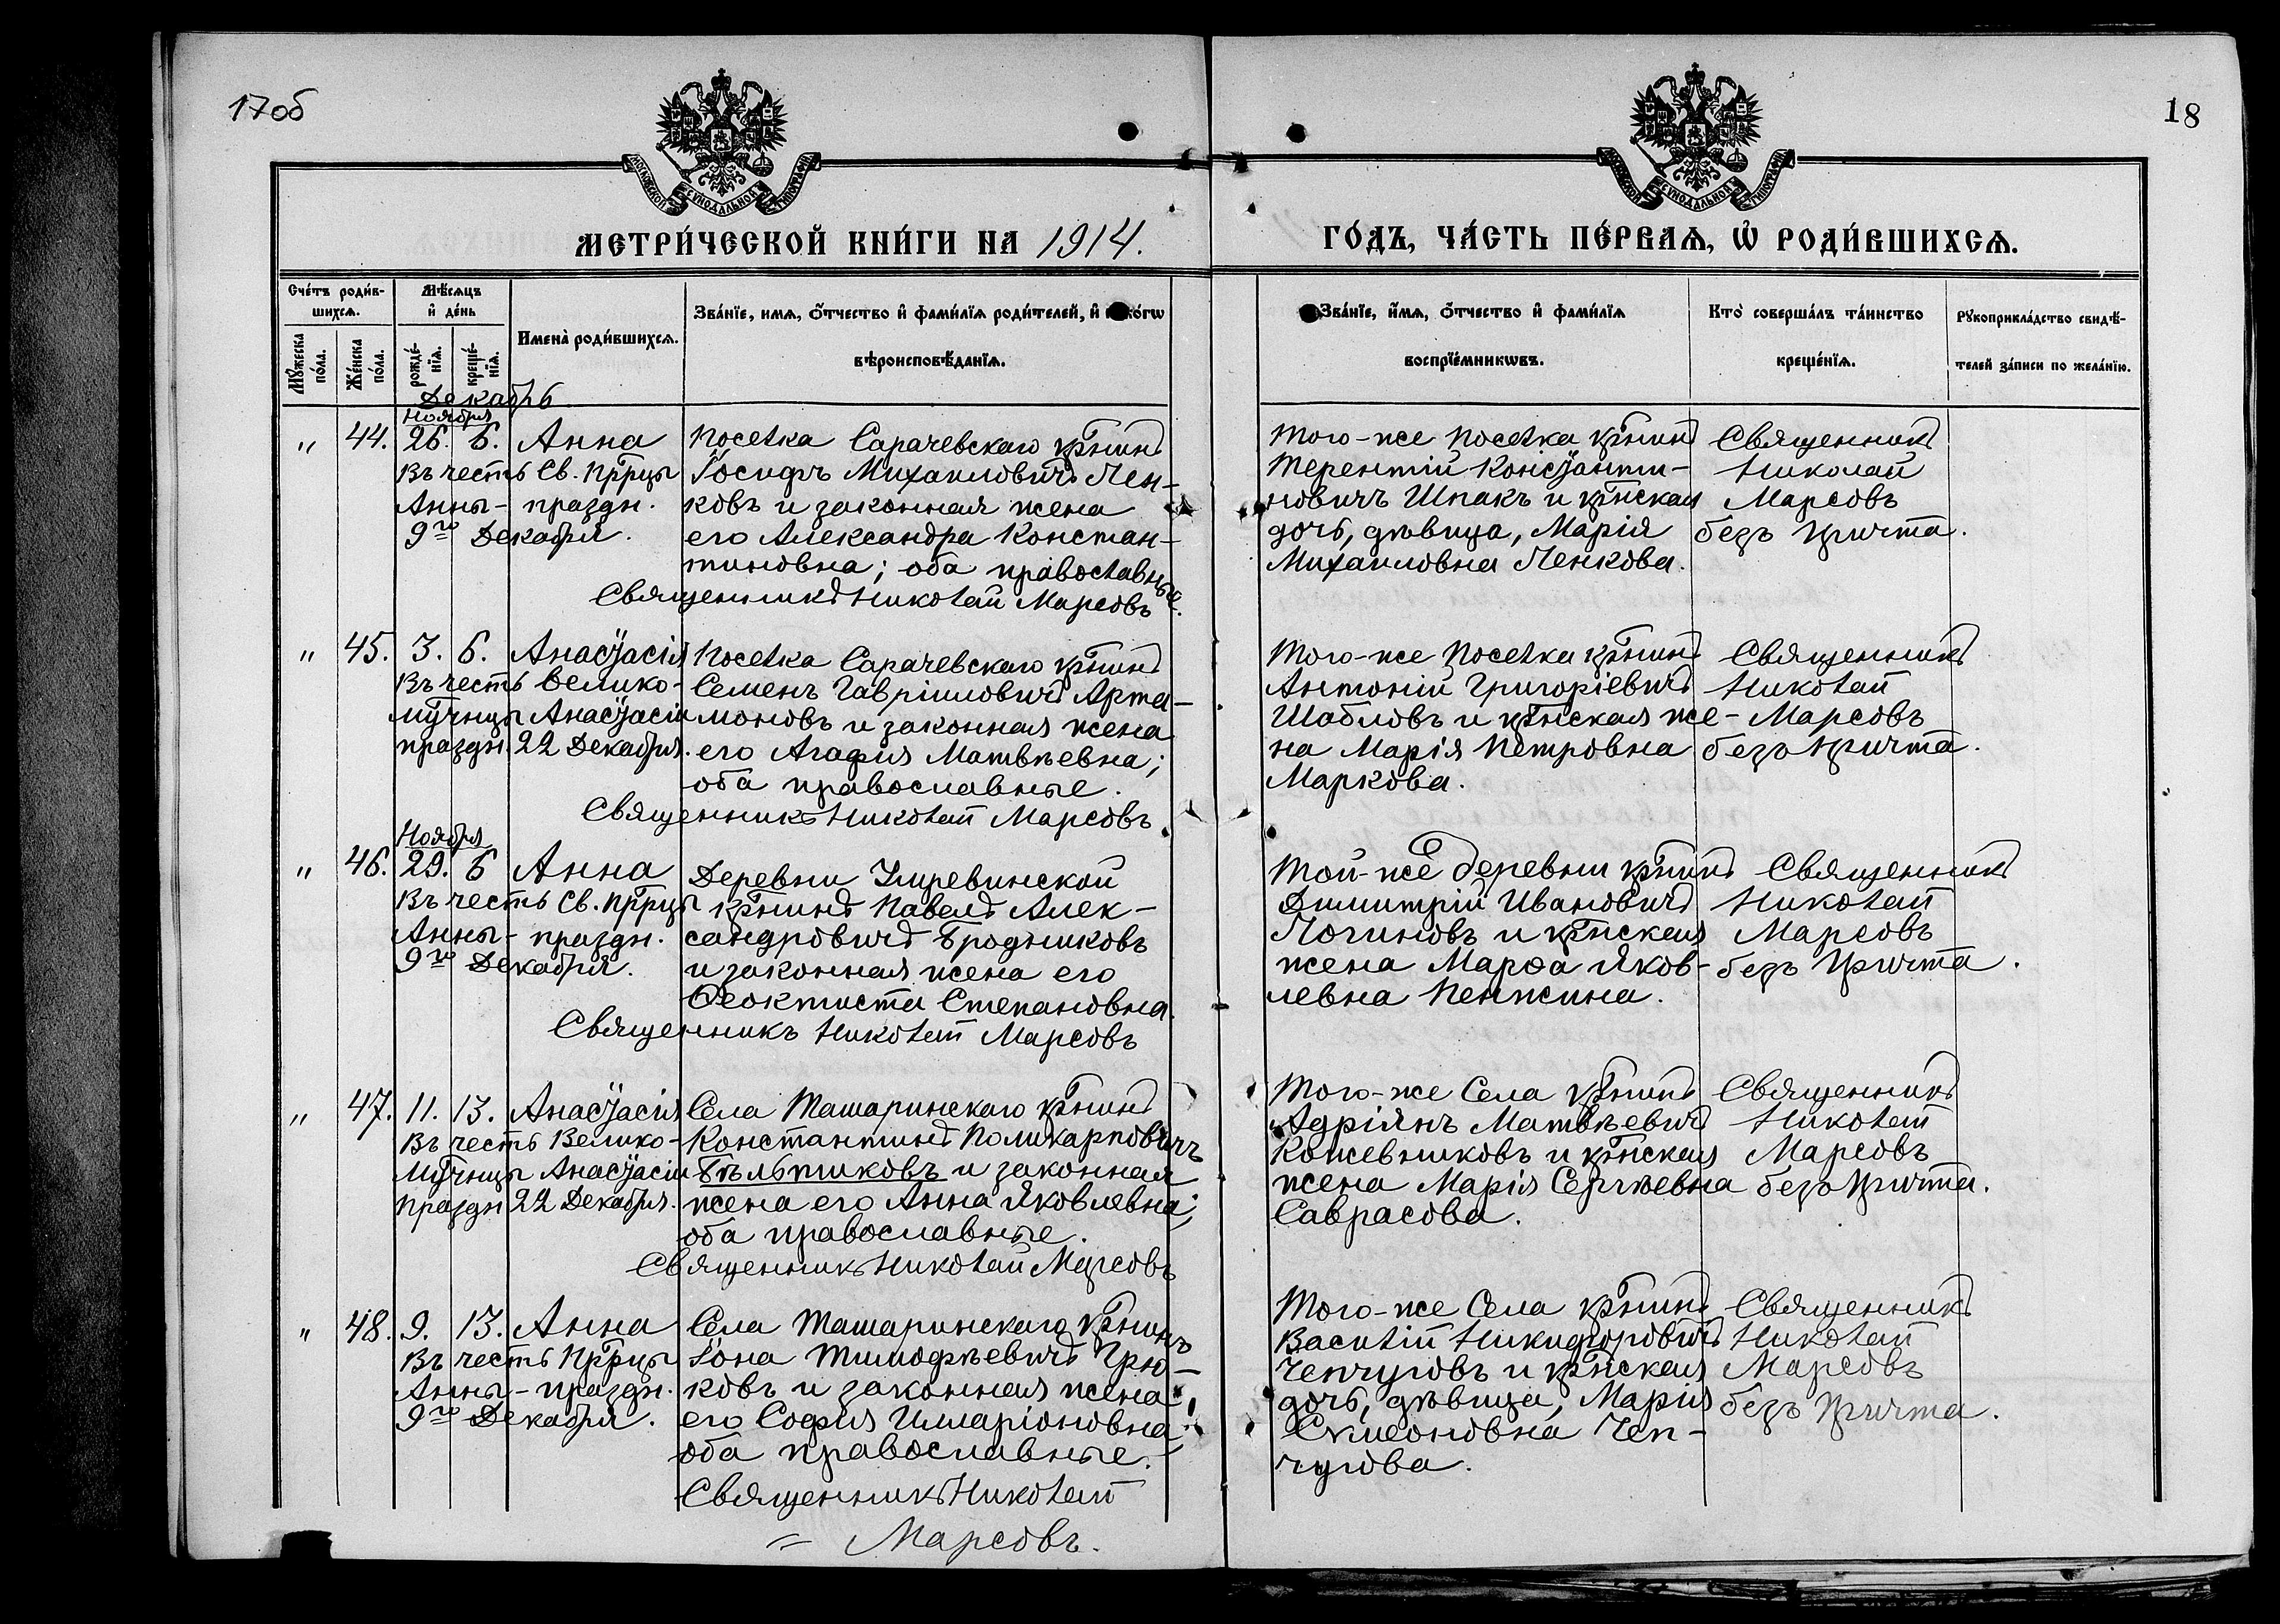 17об
18
МОСКОВСКОЙ СѴНОДАЛЬНОЙ ТИПОГРАФІИ
МОСКОВСКОЙ СѴНОДАЛЬНОЙ ТИПОГРАФІИ
МЕТРИ́ЧЕСКОЙ КНИ́ГИ НА 1914.
ГО́ДЪ, ЧА́СТЬ ПЕ́РВАѦ, Ѡ҆ РОДИ́ВШИХСѦ.
Сче́тъ роди́в-
шихсѧ.
Мѣ́сѧцъ
и҆ де́нь
Мꙋ́жеска
по́ла.
Же́нска
по́ла.
рожде́-
нїѧ.
креще́-
нїѧ.
Имена̀ роди́вшихсѧ.
Зва́нїе, имѧ, ѻ҆́тчество и҆ фами́лїѧ роди́телей, и҆
вѣроисповѣ́данїѧ.
Зва́нїе, и҆́мѧ, ѻ҆́тчество и҆ фами́лїѧ
воспрїе́мникѡвъ.
Кто̀ соверша́лъ та́инство
креще́нїѧ.
Рꙋкоприкла́дство свидѣ́-
телей за́писи по жела́нїю.
Декабрь
Ноября
" 44. 26. 6. Анна
Въ честь Св. Пррцы
Анны - праздн.
9го Декабря.
Поселка Сарачевскаго крнинъ
Іосифъ Михаиловичъ Пен-
ковъ и законная жена
его Александра Констан-
тиновна; оба православные.
Священникъ Николай Марсовъ
Того-же Поселка крнинъ
Терентій Константи-
новичъ Шпакъ и крнская
дочь, дѣвица, Марія
Михаиловна Пенкова.
Священникъ
Николай
Марсовъ
безъ причта.
" 45. 3. 6. Анастасія
Въ честь Велико-
мучицы Анастасіи
праздн. 22 Декабря.
Поселка Сарачевскаго крнинъ
Семенъ Гавріиловичъ Арта-
моновъ и законная жена
его Агафія Матвѣевна;
оба православные.
Священникъ Николай Марсовъ.
Того-же Поселка крнинъ
Антоній Григоріевичъ
Шабловъ и крнская же-
на Марія Петровна
Маркова.
Священникъ
Николай
Марсовъ
безъ причта.
Ноября
" 46. 29. 6 Анна
Въ честь Св. Пррцы
Анны - праздн.
9го Декабря.
Деревни Умревинской
крнинъ Павелъ Алек-
сандровичъ Бродниковъ
и законная жена его
Ѳеоктиста Степановна.
Священникъ Николай Марсовъ
Той-же деревни крнинъ
Димитрій Ивановичъ
Логиновъ и крнская
жена Марѳа Яков-
левна Пенжина.
Священникъ
Николай
Марсовъ
безъ причта.
" 47. 11. 13. Анастасія
Въ честь Велико-
мучицы Анастасіи
Праздн 22 Декабря.
Села Ташаринскаго крнинъ
Константинъ Поликарповичъ
Бѣльтиковъ и законная
жена его Анна Яковлевна;
оба православные.
Священникъ Николай Марсовъ
Того-же Села крнинъ
Адріянъ Матвѣевичъ
Кожевниковъ и крнская
жена Марія Сергѣевна
Саврасова.
Священникъ
Николай
Марсовъ
безъ причта.
" 48. 9. 13. Анна
Въ честь Пррцы
Анны - праздн.
9го Декабря.
Села Ташаринскаго крнинъ
Іона Тимофѣевичъ Грю-
ковъ и законная жена
его Софія Илларіоновна;
оба православные.
Священникъ Николай
= Марсовъ.
Того-же Села крнинъ
Василій Никифоровичъ
Чепчуговъ и крнская
дочь, дѣвица, Марія
Сѵмеоновна Чеп-
чугова.
Священникъ
Николай
Марсовъ
безъ причта.